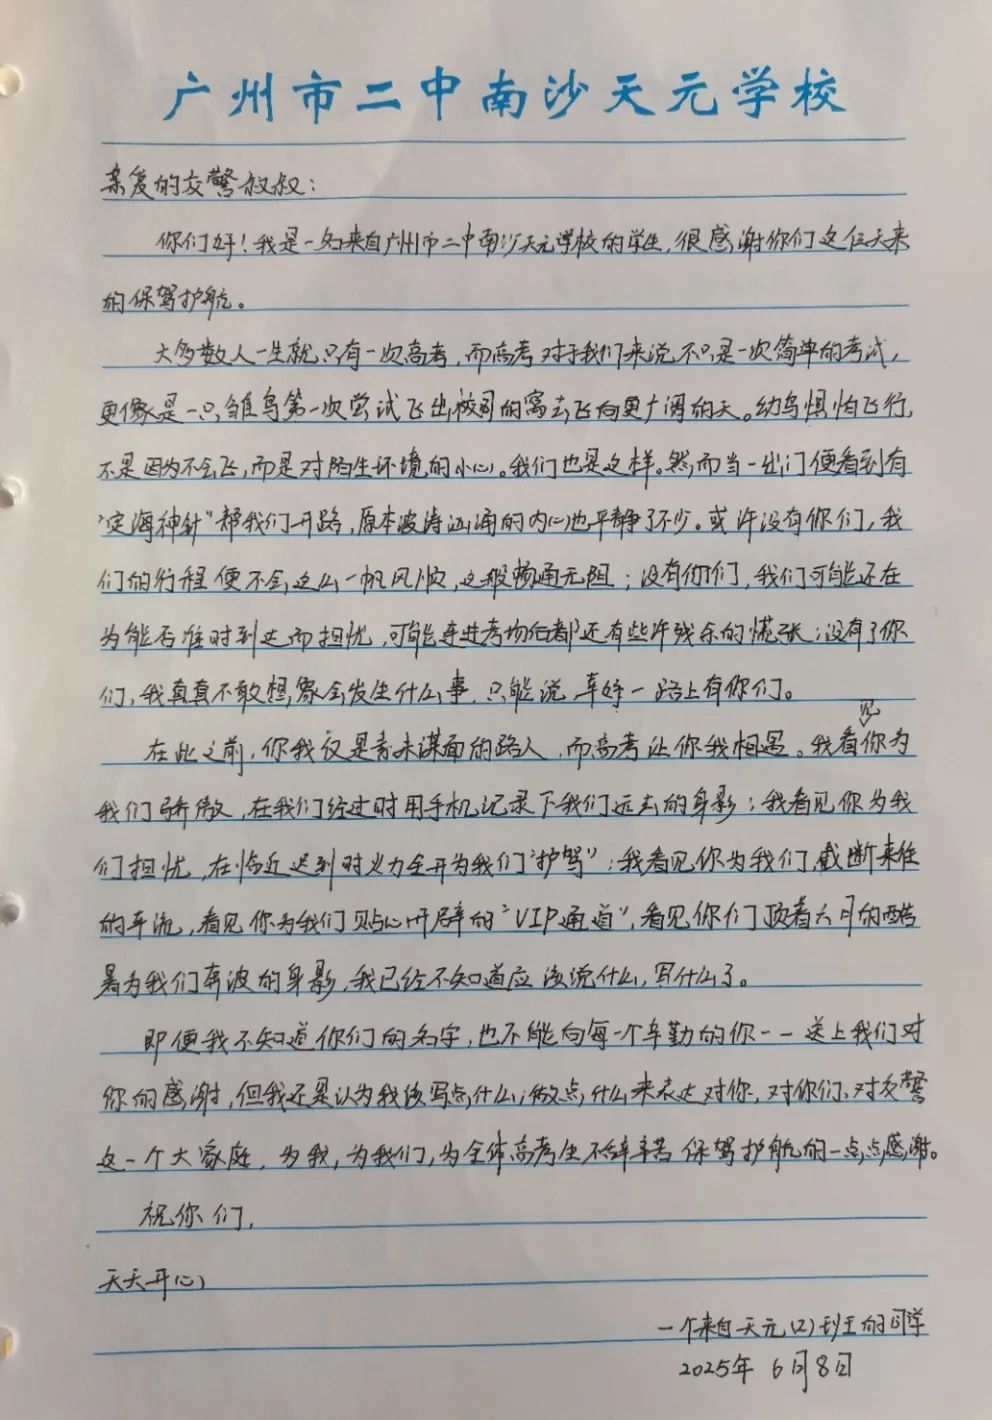 广州市二中南沙天元学校
亲爱的交警叔叔：
你们好！我是一名来自广州市二中南沙天元学校的学生，很感谢你们这几天来
的保驾护航。
大多数人一生就只有一次高考，而高考对于我们来说不只是一次简单的考试，
更像是一只雏鸟第一次尝试飞出校园的窝去飞向更广阔的天。幼鸟惧怕飞行，
不是因为不会飞，而是对陌生环境的小心。我们也是这样。然而当一出门便看到有
“定海神针”帮我们开路，原本波涛汹涌的内心也平静了不少。或许没有你们，我
们的行程便不会这么一帆风顺，这般畅通无阻；没有你们，我们可能还在
为能否准时到达而担忧，可能连进考场后都还有些许残余的慌张；没有了你
们，我真真不敢想象会发生什么事，只能说幸好一路上有你们。
在此之前，你我仅是素未谋面的路人，而高考让你我相遇。我看见你为
我们骄傲，在我们经过时用手机记录下我们远去的身影；我看见你为我
们担忧，在临近迟到时火力全开为我们“护驾”；我看见你为我们截断来往
的车流，看见你为我们贴心开辟的“VIP通道”，看见你们顶着六月的酷
暑为我们奔波的身影，我已经不知道应该说什么，写什么了。
即便我不知道你们的名字，也不能向每一个辛勤的你一一送上我们对
你的感谢，但我还是认为我该写点什么，做点什么来表达对你，对你们、对交警
这一个大家庭，为我，为我们，为全体高考生不辞辛苦保驾护航的一点点感谢。
祝你们，
天天开心
一个来自天元(2)班的同学
2025年6月8日